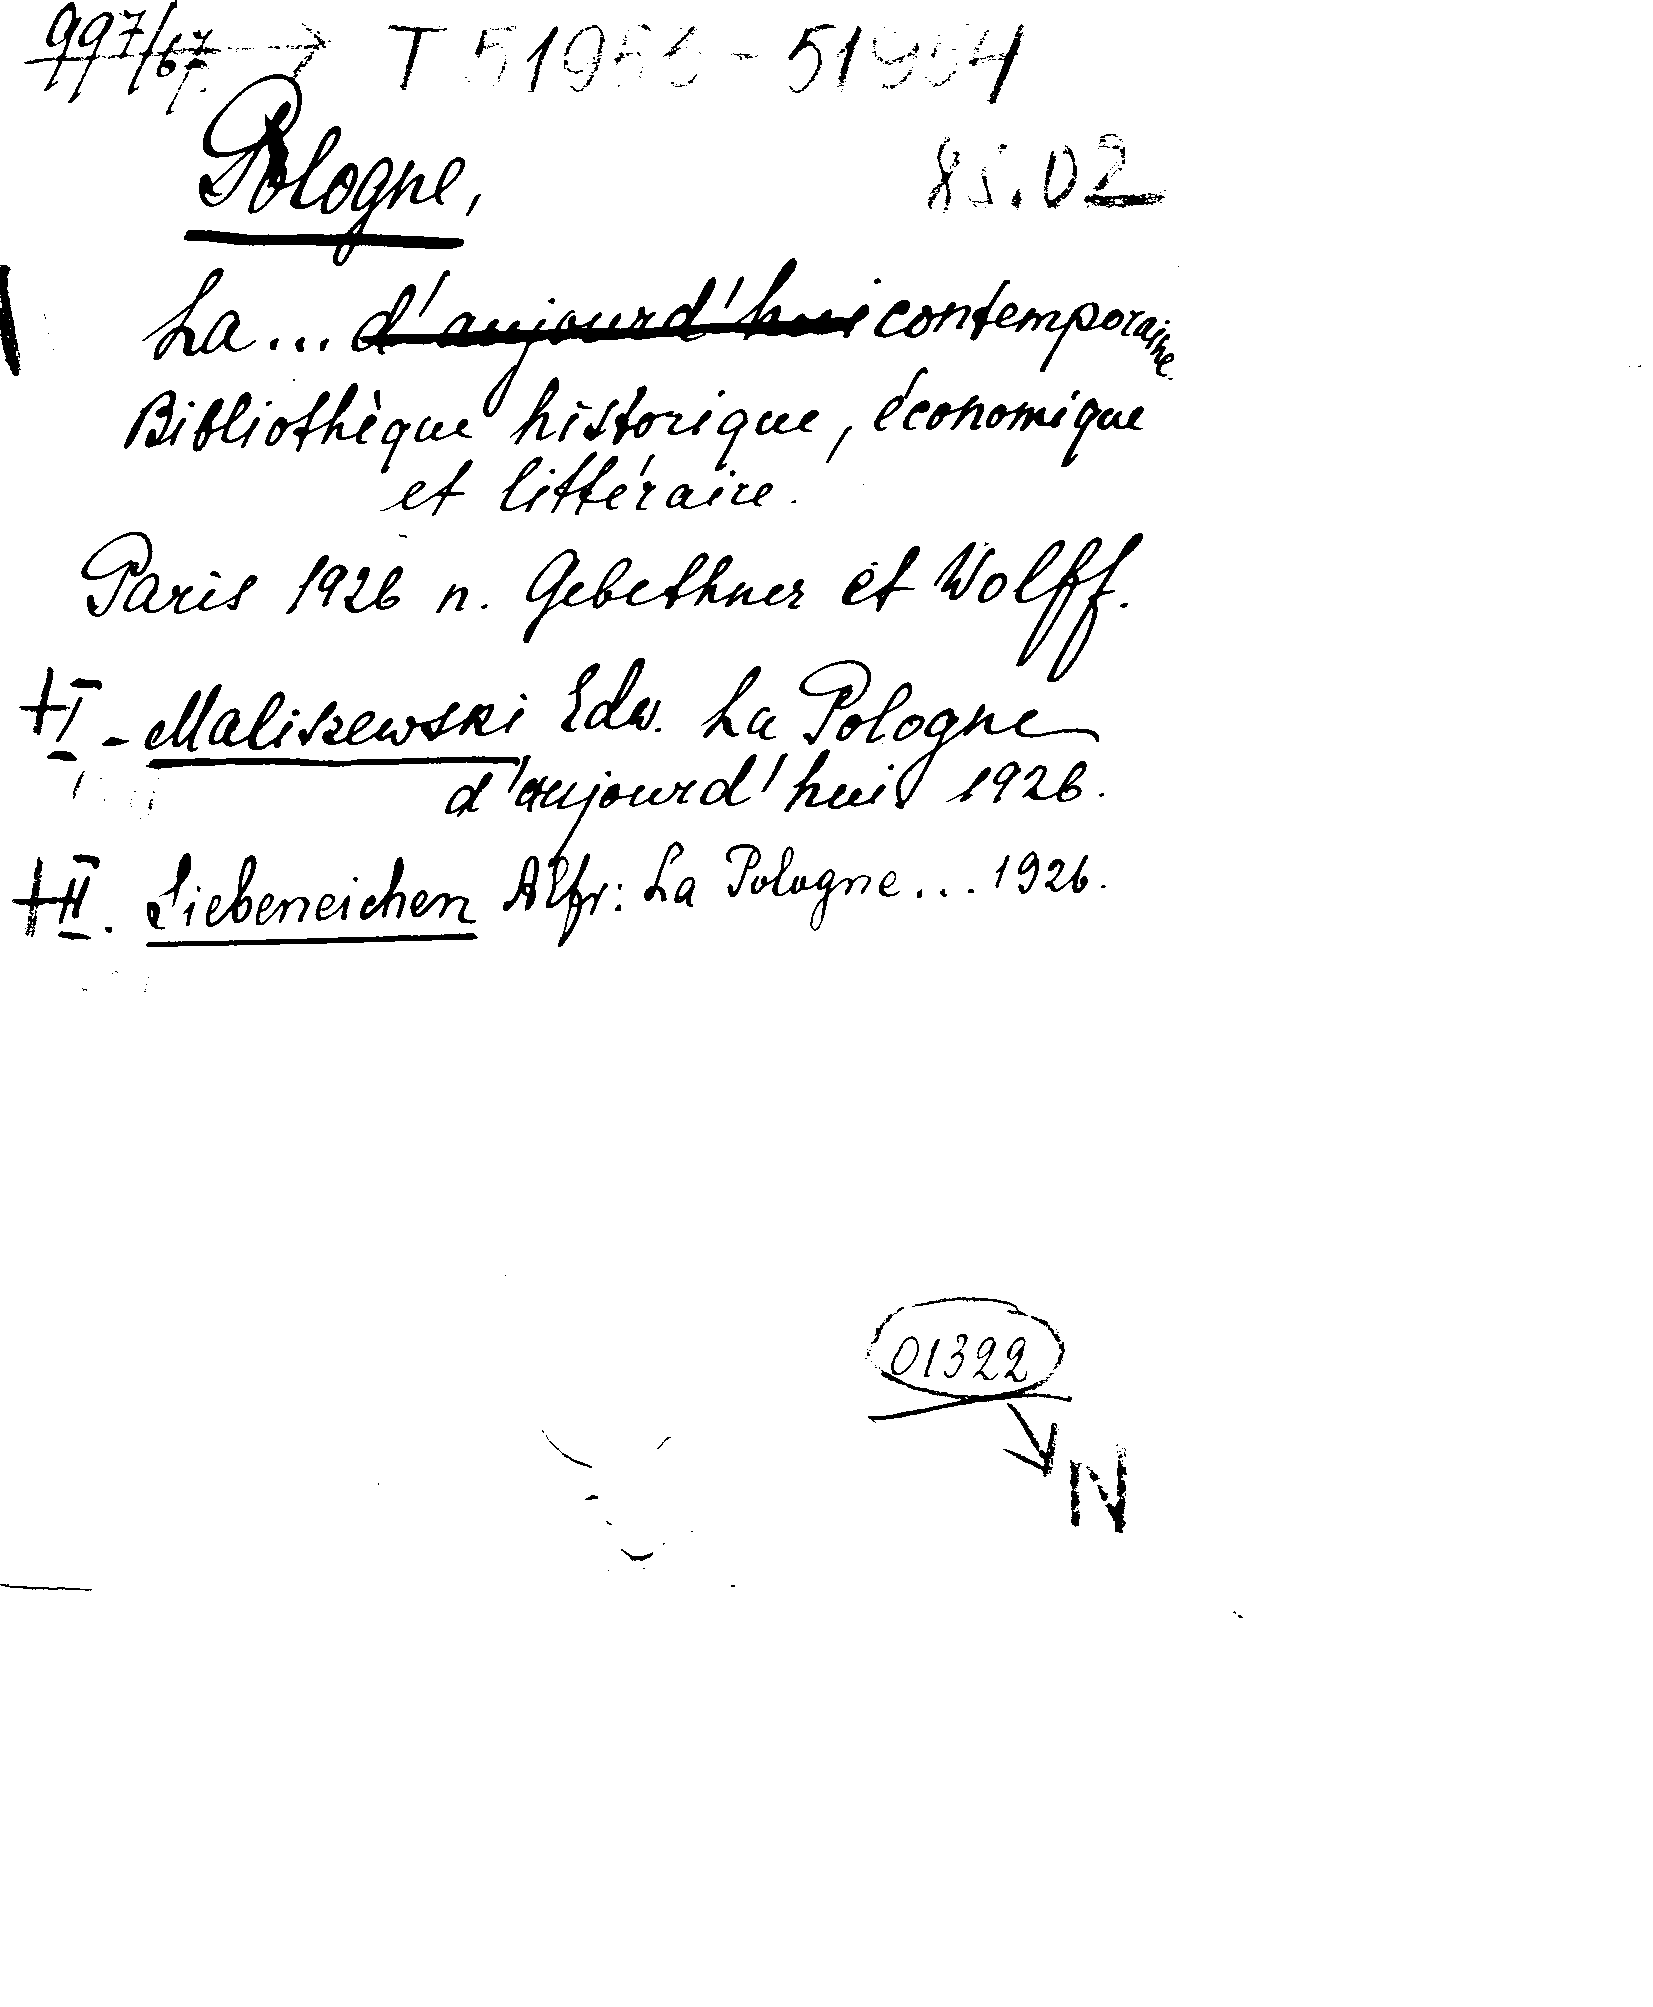 997/67.
T
85.02
Pologne,
La... d'aujourd'hui contemporaine.
Bibliothèque historique, économique
et littéraire.
Paris 1926 n. Gebethner et Wolff.
+I - Maliszewski Edw. La Pologne
d'aujourd'hui 1926.
+II. Liebeneichen Alfr: La Pologne... 1926.
01322
N